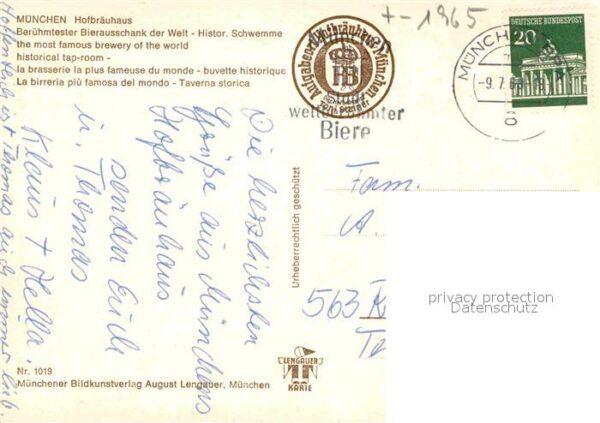 MÜNCHEN Hofbräuhaus
Berühmtester Bierausschank der Welt - Histor. Schwemme
the most famous brewery of the world
historical tap-room -
la brasserie la plus fameuse du monde - buvette historique
La birreria più famosa del mondo - Taverna storica
Die herzlichsten
Grüße aus Münchens
Hofbräuhaus
senden Euch
u. Thomas
Klaus + Hella.
Hoffentlich ist Thomas auch immer lieb.
+-1965
Ausgabeort Hofbräuhaus München
HB
Stadt
weltberühmter
Biere
MÜNCHEN
-9.7.6
DEUTSCHE BUNDESPOST
20
Urheberrechtlich geschützt
Fam.
A.
563 R
Te
privacy protection
Datenschutz
Nr. 1019
Münchener Bildkunstverlag August Lengauer, München
LENGAUER
KARTE